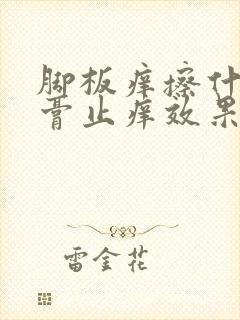 脚板痒擦什
膏止痒效果
雷金花